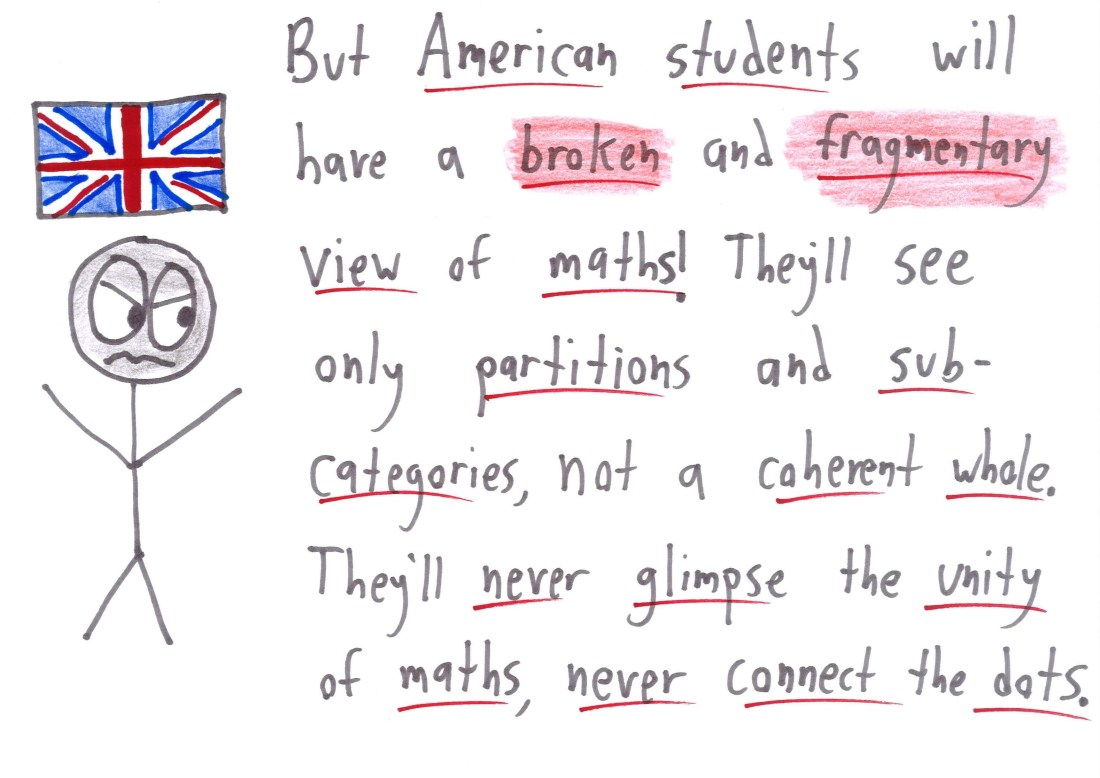 But American students will
have a broken and fragmentary
view of maths! They'll see
only partitions and sub-
categories, not a coherent whole.
They'll never glimpse the unity
of maths, never connect the dots.